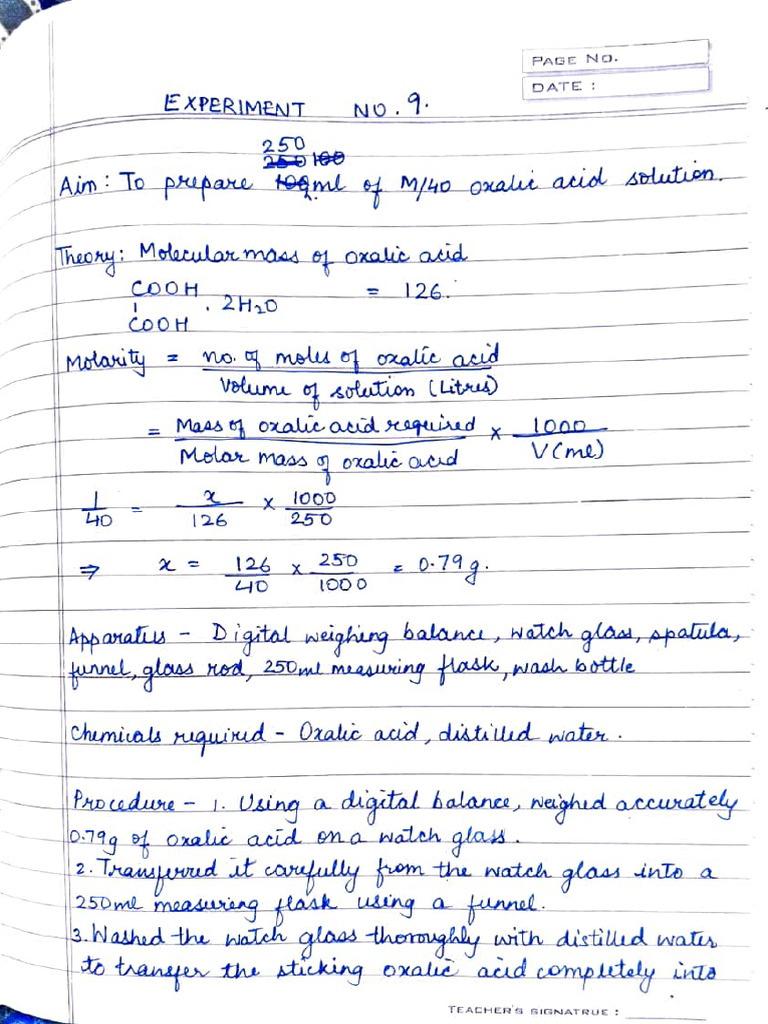 PAGE NO.
DATE :
EXPERIMENT NO. 9.
250
250 100
Aim : To prepare 100ml of M/40 oxalic acid solution.
Theory : Molecular mass of oxalic acid
COOH
| . 2H₂O = 126.
COOH
Molarity = no. of moles of oxalic acid
Volume of solution (Litres)
= Mass of oxalic acid required × 1000
Molar mass of oxalic acid V(ml)
1/40 = x/126 × 1000/250
⇒ x = 126/40 × 250/1000 = 0.79g.
Apparatus - Digital weighing balance, watch glass, spatula,
funnel, glass rod, 250ml measuring flask, wash bottle
Chemicals required - Oxalic acid, distilled water.
Procedure - 1. Using a digital balance, weighed accurately
0.79g of oxalic acid on a watch glass.
2. Transferred it carefully from the watch glass into a
250ml measuring flask using a funnel.
3. Washed the watch glass thoroughly with distilled water
to transfer the sticking oxalic acid completely into
TEACHER'S SIGNATRUE :